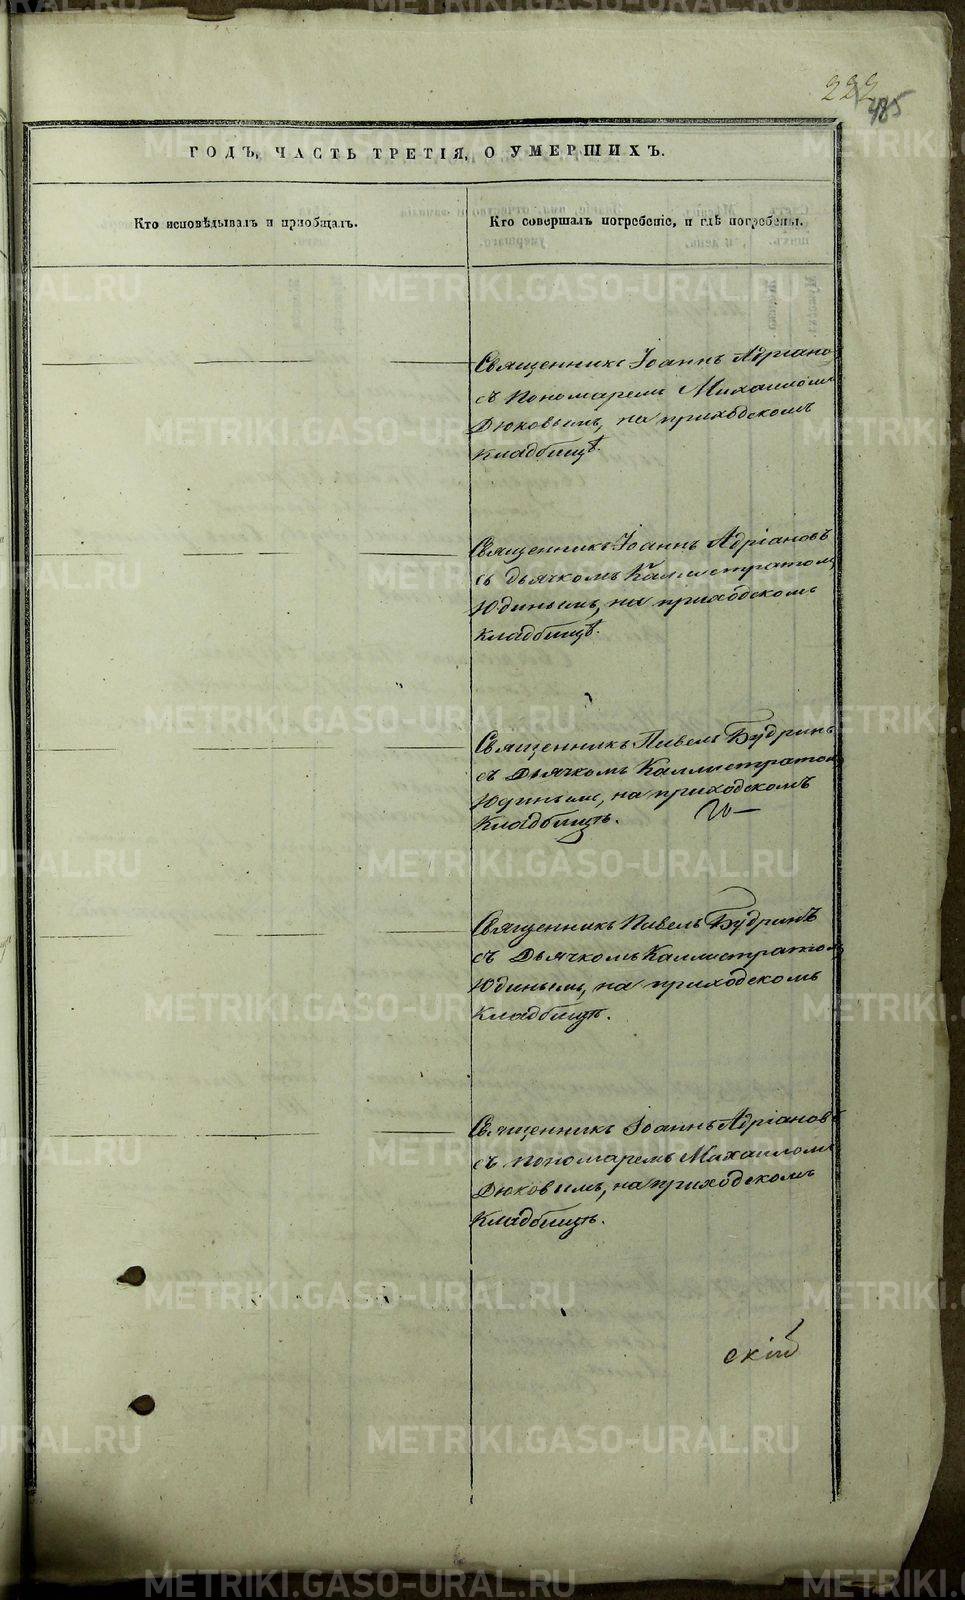 222
485
ГОДЪ, ЧАСТЬ ТРЕТІЯ, О УМЕРШИХЪ.
Кто исповѣдывалъ и пріобщалъ.
Кто совершалъ погребеніе, и гдѣ погребены.
Священникъ Іоаннъ Адріано
съ пономаремъ Михаиломъ
Дюковымъ, на приходскомъ
кладбищѣ.
Священникъ Іоаннъ Адріановъ
съ дьячкомъ Каллистратомъ
Юдинымъ, на приходскомъ
кладбищѣ.
Священникъ Павелъ Будринъ
съ Дьячкомъ Каллистратомъ
Юдинымъ, на приходскомъ
Кладбищѣ.
Священникъ Павелъ Будринъ
съ Дьячкомъ Каллистратомъ
Юдинымъ, на приходскомъ
Кладбищѣ.
Священникъ Іоаннъ Адріановъ
съ пономаремъ Михаиломъ
Дюковымъ, на приходскомъ
Кладбищѣ.
скій
METRIKI.GASO-URAL.RU